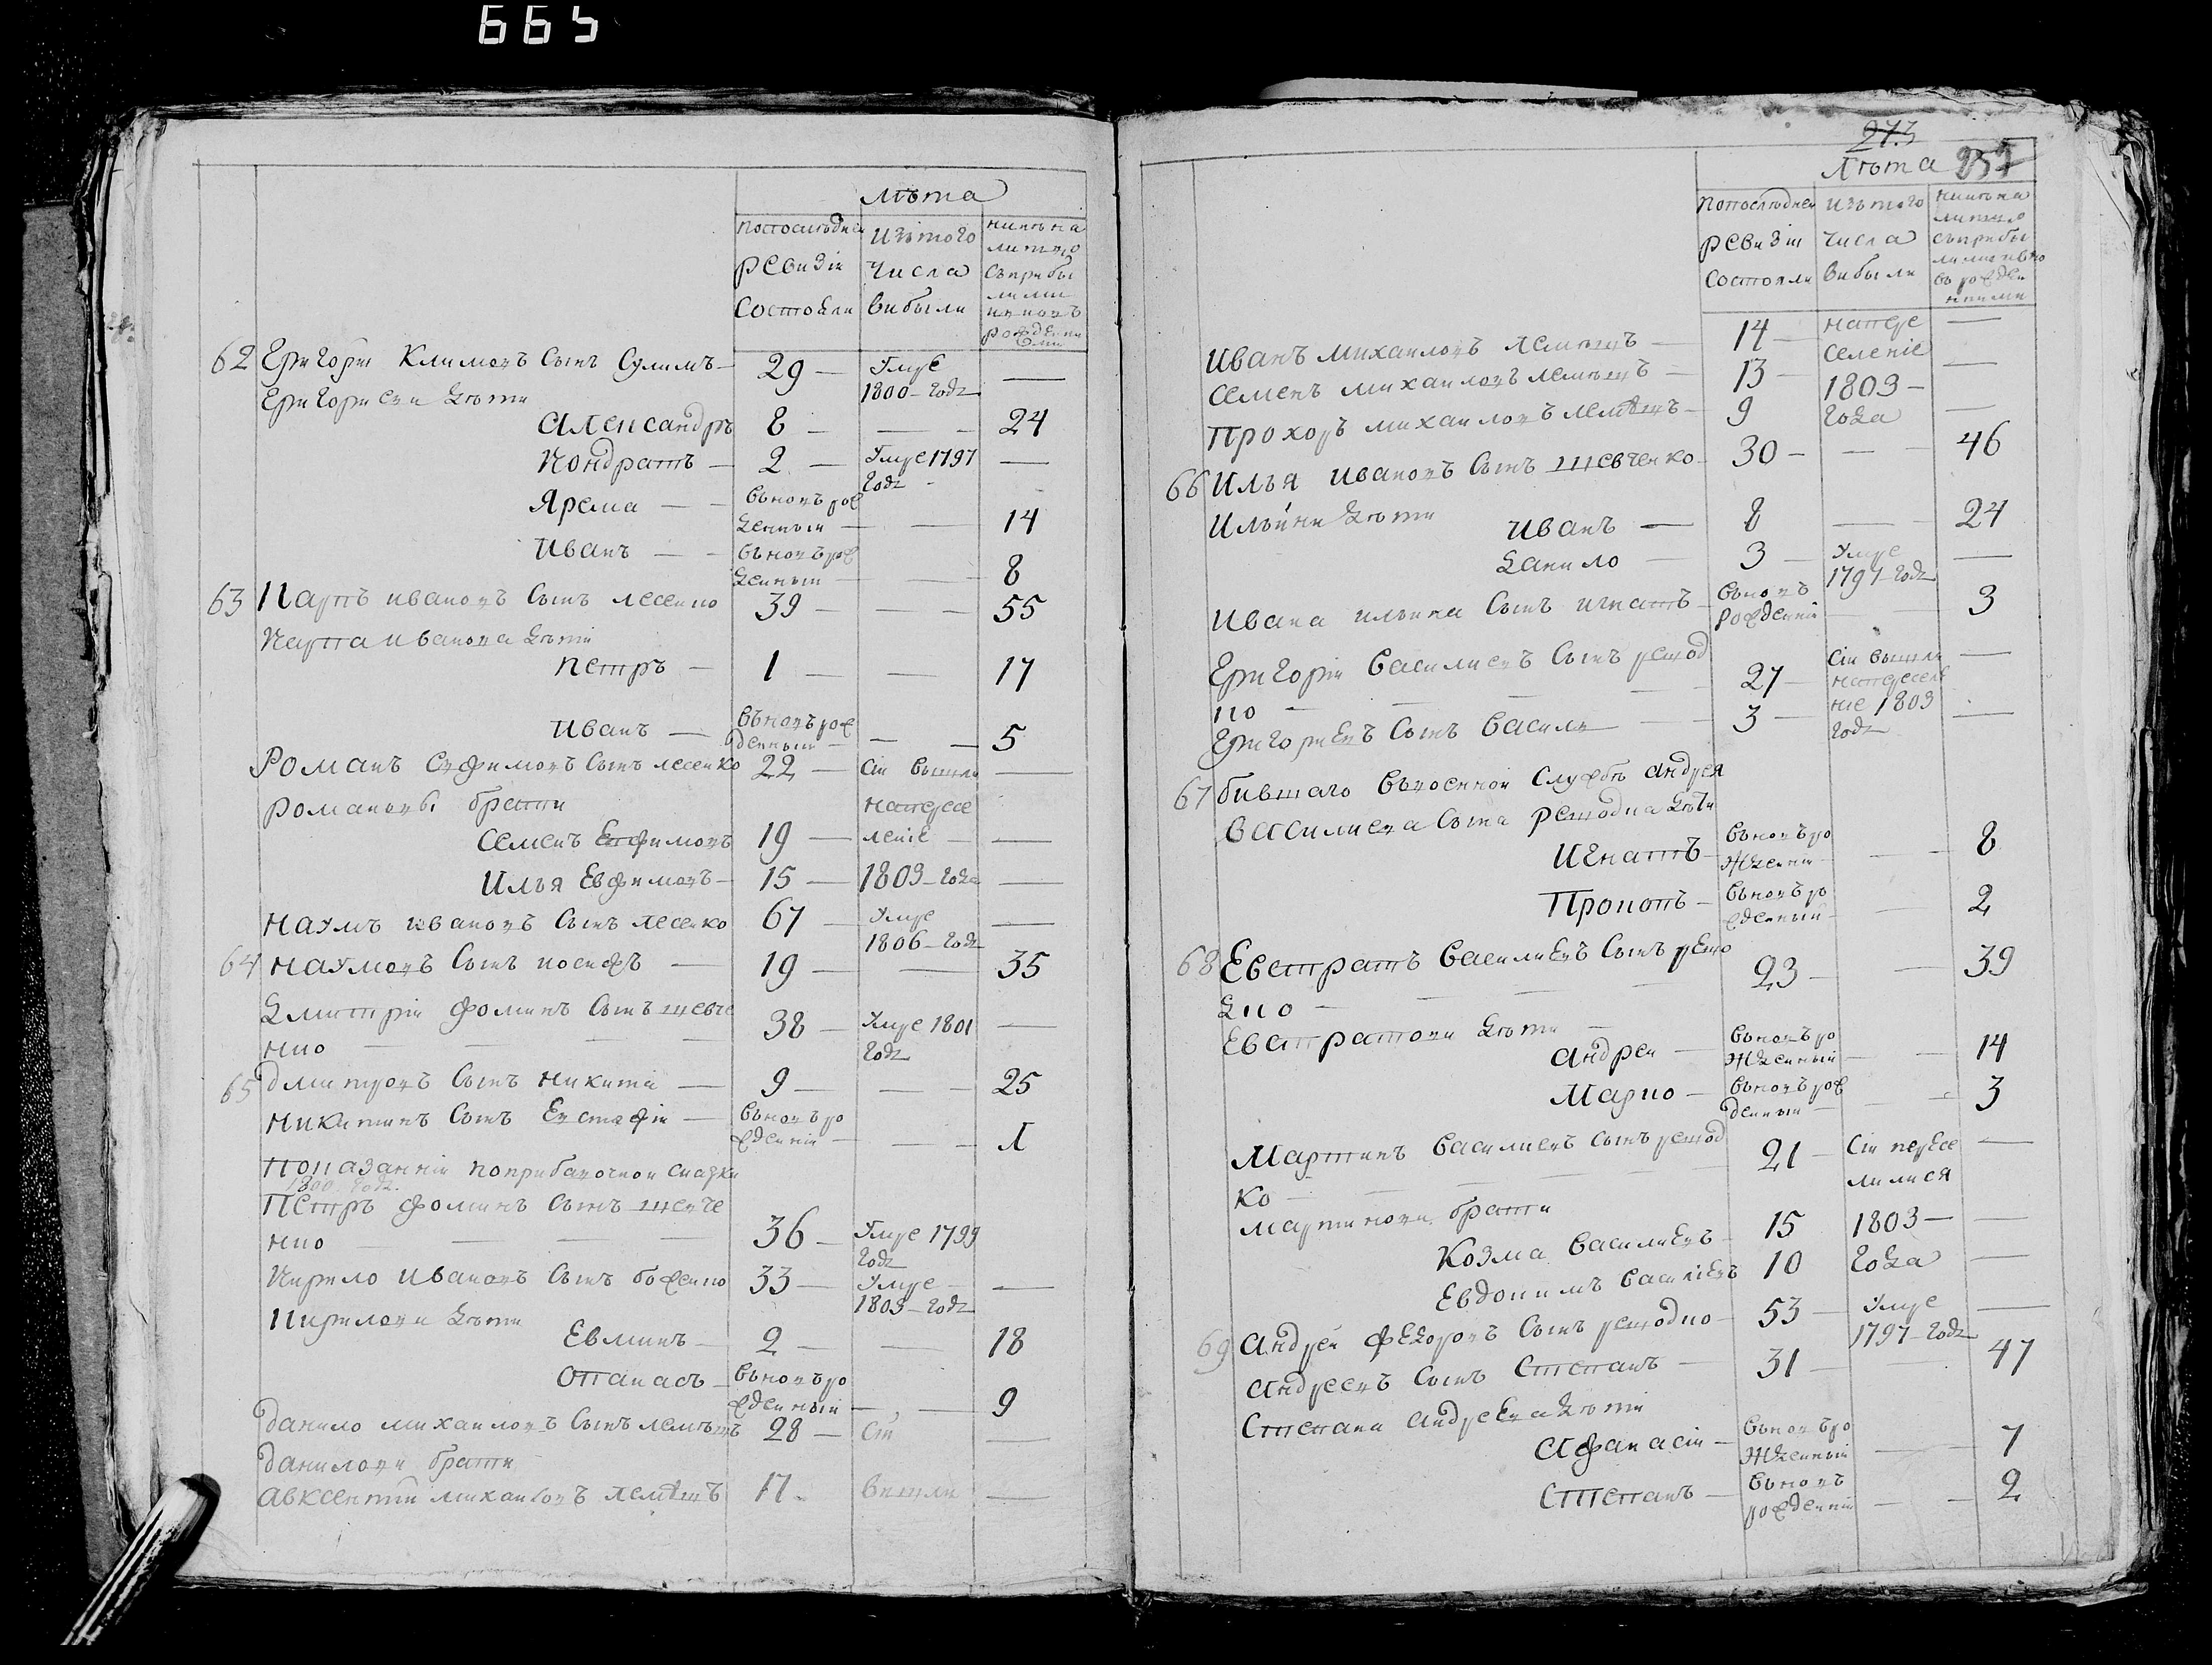 665
лѣта
Попоследней
ревизіи
состояли
изътого
числа
вибыли
нинѣ на
лицо
съприбы
лими
иновъ
рожденн
ими
62 Григорій Климовъ Сынъ Сулимъ — 29 — Умре —
1800 годa
Григориеви Дѣти
Александръ 8 — — 24
Кондратъ — 2 — Умре 1797 —
годa
Ярема — въновъ рож
денный — — 14
Иванъ — въновъ рож
денный — — 8
63 Карпъ ивановъ Сынъ лесенко 39 — — 55
Карпа иванова Дѣти
Петръ — 1 — — 17
Иванъ — Въновъ рож
денный — — 5
Романъ Ефимовъ Сынъ лесенко 22 — Сіи вышли —
романовы брати напересе
Семенъ Ефимовъ 19 — леніе —
Илья Евфимовъ — 15 — 1803 года —
Наумъ ивановъ Сынъ лесенко 67 — Умре —
1806 годa
64 Наумовъ Сынъ иосифъ — 19 — — 35
Дмитрій Фоминъ Сынъ шевче
нко — 38 — Умре 1801 —
годa
65 Дмитровъ Сынъ Никита — 9 — — 25
Никитинъ Сынъ Евстафій — Въновъ ро
жденій — — 1
Показанній поприбавочной сказки
1800 годa.
Петръ Фоминъ Сынъ шевче
нко — 36 — Умре 1799
годa
Кирило Ивановъ Сынъ боженко 33 — Умре —
1803 годa
Кирилови Дѣти
Евминъ — 2 — — 18
Опанасъ — Въновъ ро
жденный — — 9
Данило михаиловъ Сынъ лемѣшъ 28 — Сіи —
Данилови брати
Авксентій михаиловъ лемѣшъ 17 — вишли —
273
Лѣта
Попоследней
ревизіи
состояли
изътого
числа
вибыли
нинѣ на
лицо
съприбы
Иванъ михаиловъ лемѣшъ — 14 — напере —
Семенъ михаиловъ лемѣшъ — 13 — селеніе —
Прохоръ михаиловъ лемѣшъ — 9 1803 — года —
66 Илья ивановъ Сынъ шевченко 30 — — 46
Ильини Дѣти
Иванъ — 8 — 24
Данило — 3 — Умре —
1797 годa
Ивана ильина Сынъ игнатъ — Въновъ
рожденній — 3
Григорій Василиевъ Сынъ решод
ко — 27 — Сіи вышли —
напереселе
Григориевъ Сынъ Василь — 3 — ніе 1803 —
годa
67 бившаго Въвоенной службѣ андрея
Василиева Сына решодка Дѣти
Игнатъ — Въновъ ро
жденній — — 8
Прокопъ — Въновъ ро
жденный — — 2
68 Евстратъ Василиевъ Сынъ решо
дко — 23 — — 39
Евстратови Дѣти —
Андрей — Въновъ ро
жденный — — 14
Марко — Въновъ рож
денный — — 3
Мартинъ Василиевъ Сынъ решод
ко — 21 — Сіи пересе —
лилися
Мартинови брати
Козма Василиевъ — 15 1803 — —
Евдокимъ Василіевъ 10 года —
69 Андрей Федоровъ Сынъ решодко — 53 — Умре —
1797 годa
Андреевъ Сынъ Степанъ — 31 — — 47
Степана Андреева Дѣти
Афанасій — Въновъ ро
жденный — — 7
Степанъ — Въновъ
рожденній — — 2